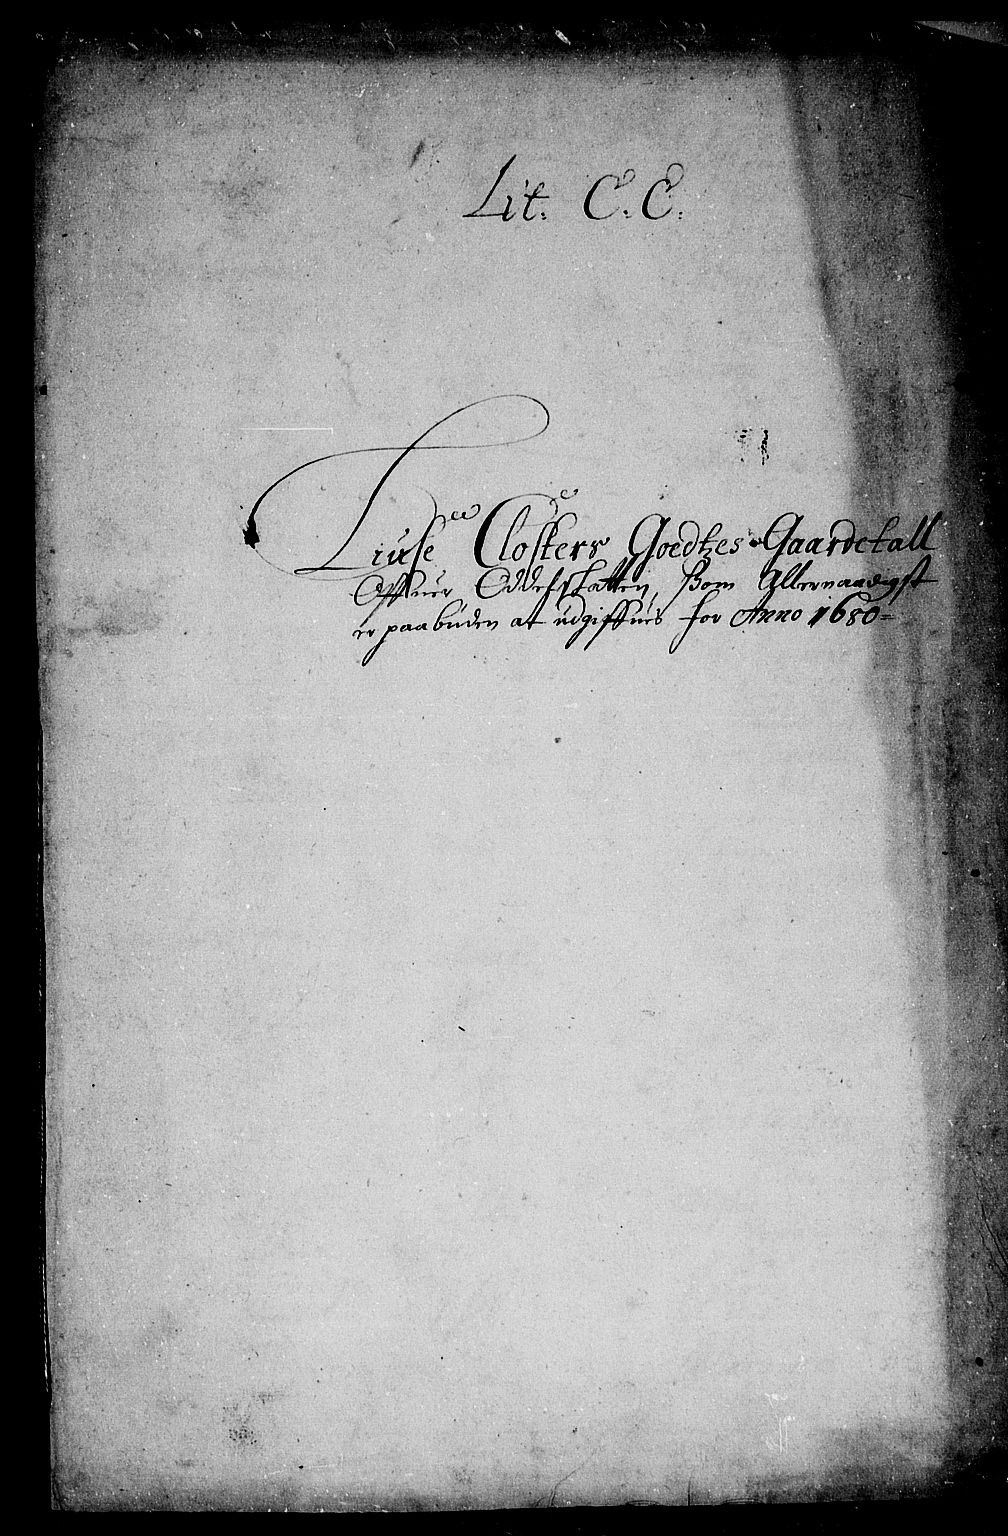 Lit. C. C.
Liuse Closters Goedtzes Gaardetall
Offuer Oddelsskatten, ßom Allernaadigst
er paabuden at udgiffues for Anno 1680